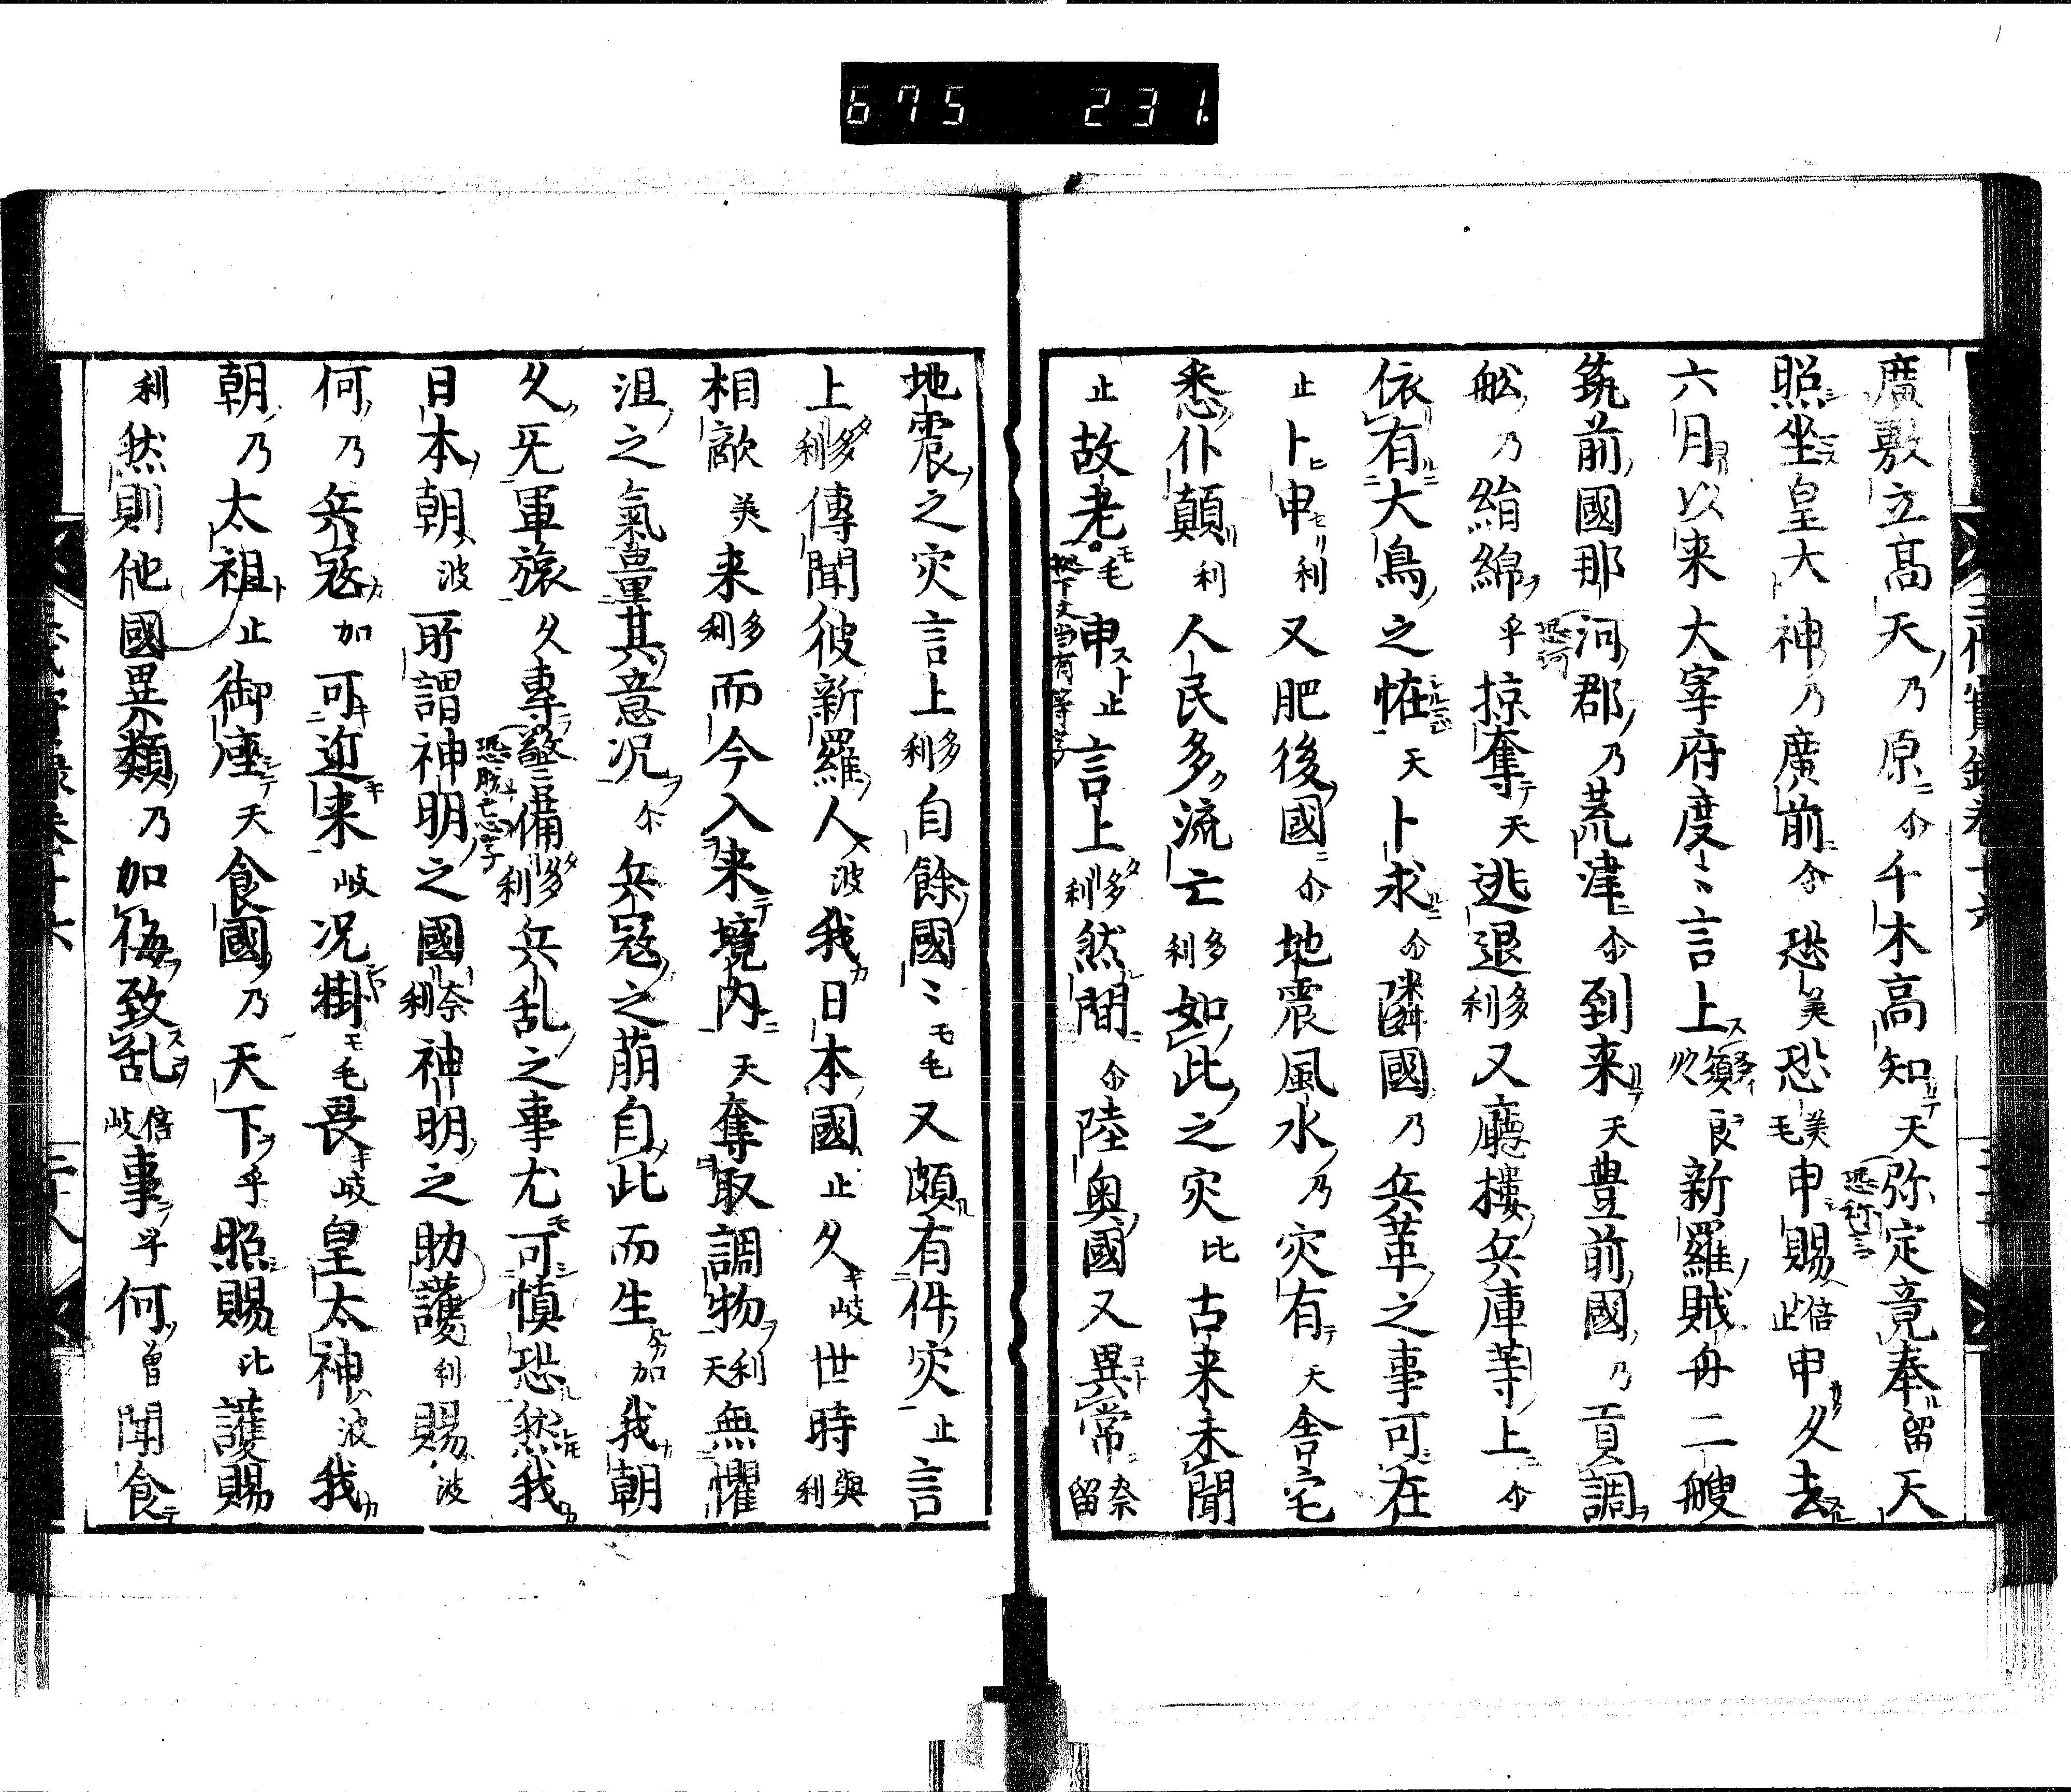 675 231.
廣敷立高天乃原尒千木高知天弥定竟奉留天
照坐皇大神乃廣前尒恐美恐美毛申賜倍止申久去
六月以来大宰府度〻言上須良久新羅賊舟二艘
筑前國那河郡乃荒津尒到来天豊前國乃貢調
舩乃絹綿乎掠奪天逃退多利又廳樓兵庫等上尒
依有大鳥之恠天卜求尒隣國乃兵革之事可在
止卜申利又肥後國尒地震風水乃灾有天舎宅
悉仆顛利人民多流亡多利如此之灾比古来未聞
止故老毛申止言上多利然間尒陸奥國又異常奈留
地震之灾言上多利自餘國〻毛又頗有件灾止言
上多利傳聞彼新羅人波我日本國止久岐世時與利
相敵美来多利而今入来境内天奪取調物利天無懼
沮之氣量其意况尒兵寇之萌自此而生加我朝
久无軍旅久專警備多利兵乱之事尤可慎恐然我
日本朝波所謂神明之國奈利神明之助護利賜波
何乃兵寇加可近来岐况掛毛畏岐皇太神波我
朝乃太祖止御座天食國乃天下乎照賜比護賜
利然則他國異類乃加侮致乱倍岐事乎何曽聞食